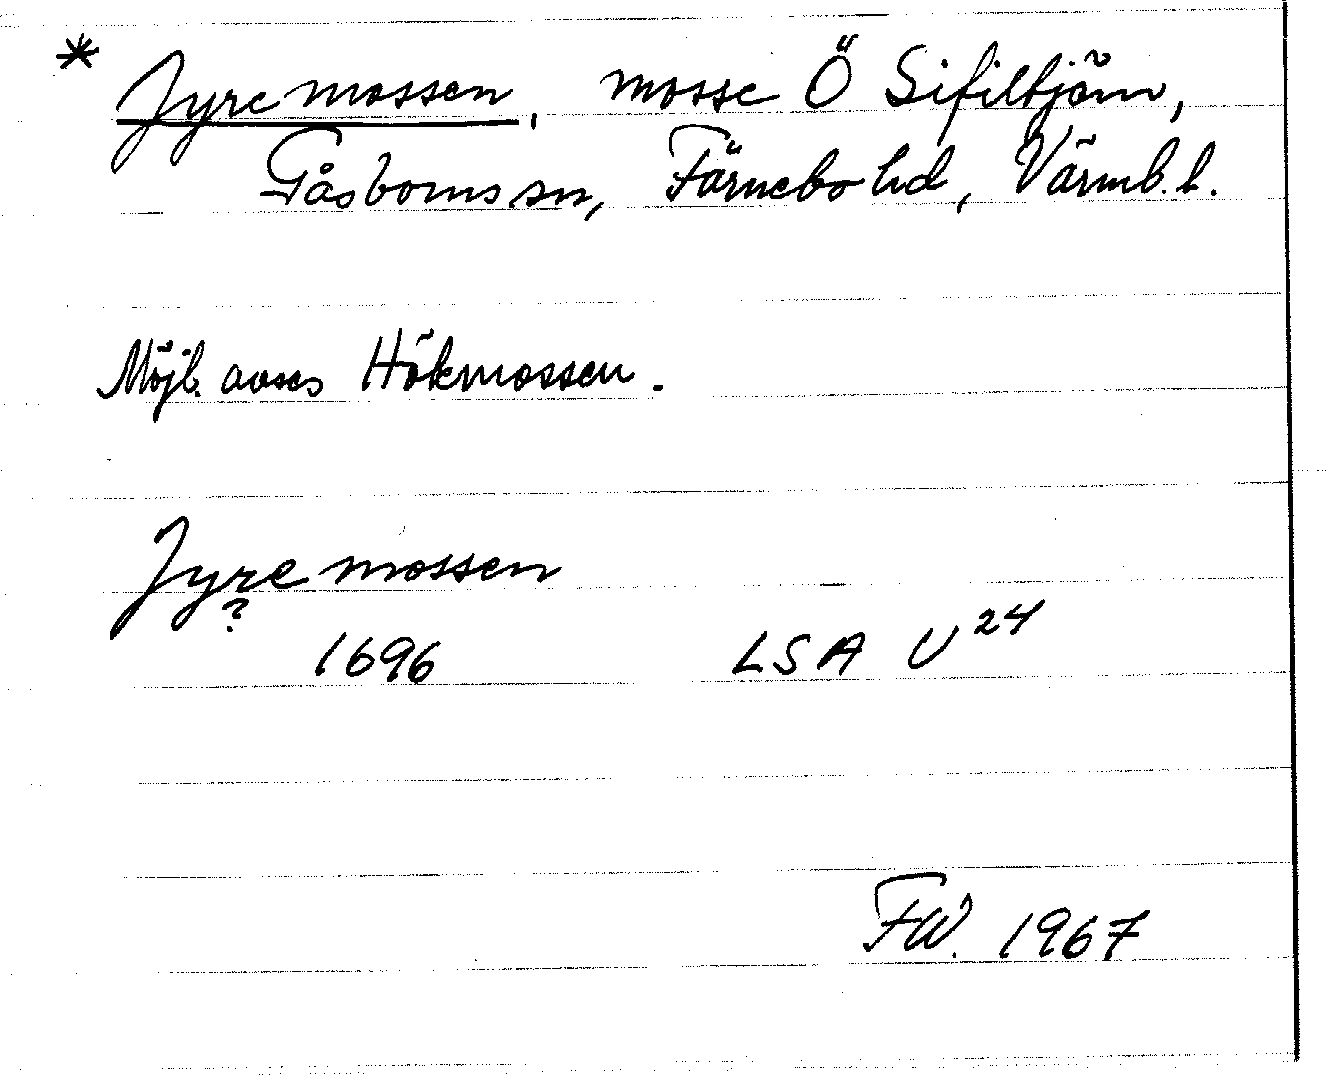 * Jyremossen, mosse Ö Sifiltjärn,
Gåsborns sn, Färnebo hd, Värml. l.
Möjl. avses Hökmossen.
Jyremossen
?
1696 LSA U 24
FW. 1967